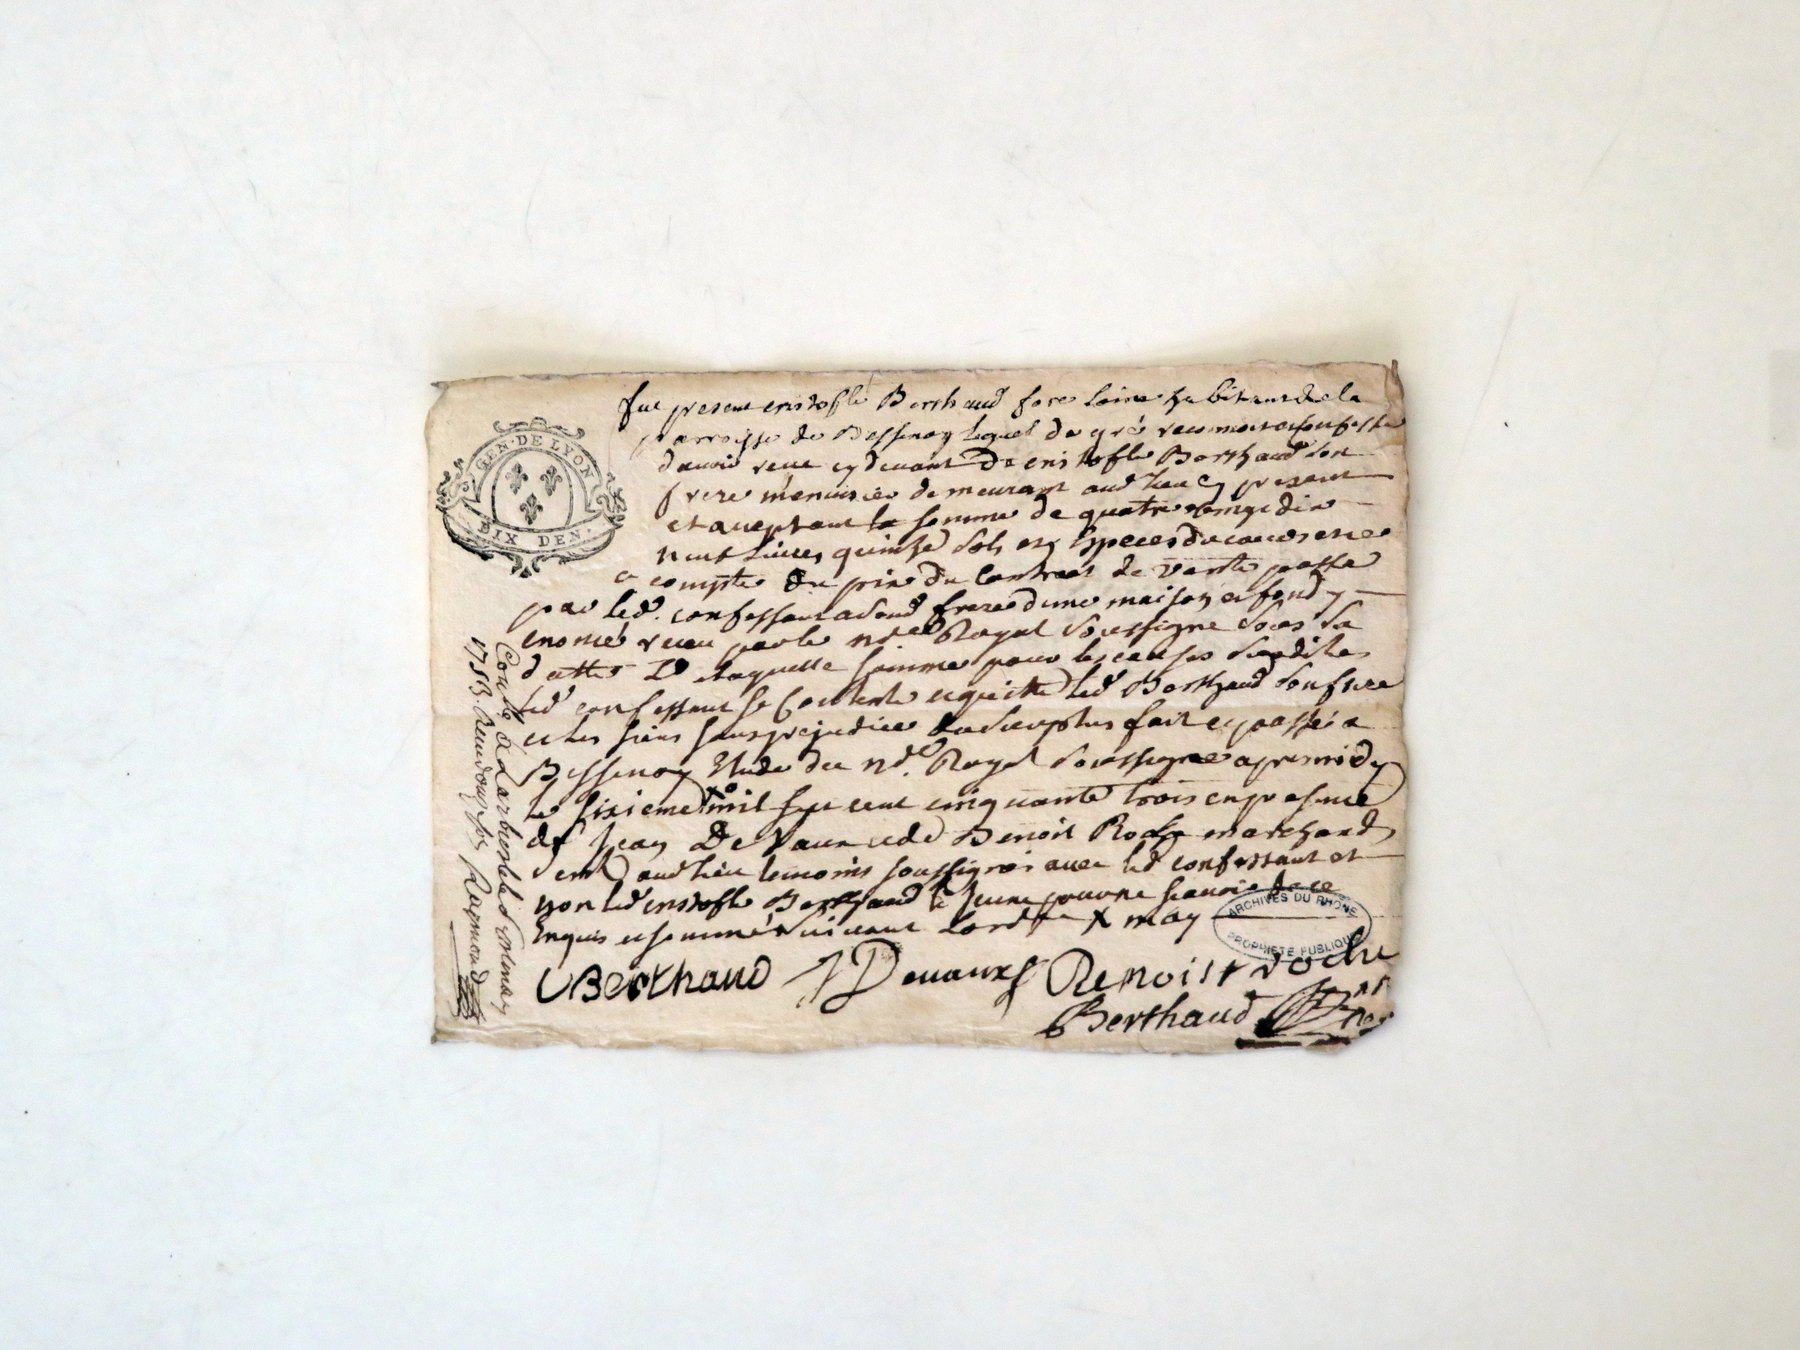 GEN·DE LYON
DIX DEN.
fut present cristofle Berthaud forelaine habitant de la
parroisse de Bessenay lequel de gré reconnoit et confesse
davoir receu cy devant De cristofle Berthaud son
frere menuisier demeurant aud lieu cy present
et acceptant la somme de quatre vingt dix
neuf livres quinze sols en especes du cours et ce
a compte du prix du Contract de vente passé
par led. confessant aud frere dune maison et fond y
enoncé receu par le nore Royal soussigné sous sa
datte De laquelle somme pour les causes susdites
led confessant se Contente et quitte led Berthaud son frere
et les siens sans prejudice du surplus fait et passé a
Bessenay Etude du nore Royal soussigné apres midy
le sixieme x mil sept cent cinquante trois en presence
de sr Jean De Vaux et de Benoit Roche marchand
dem aud lieu temoins soussignés avec led confessant et
non led cristofle Berthaud le Jeune pour ne scavoir de ce
Enquis et sommé suivant Lordce x may
CBerthaud JDevaux Benoist roche
Berthaud
Conllé a Larbresle le
1753. Receu douze sols Raymond
ARCHIVES DU RHÔNE
PROPRIÉTÉ PUBLIQUE